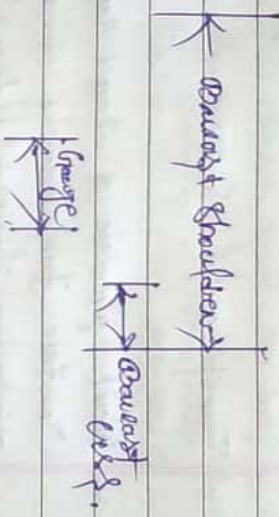 Ballast Shoulder
Gauge
Ballast